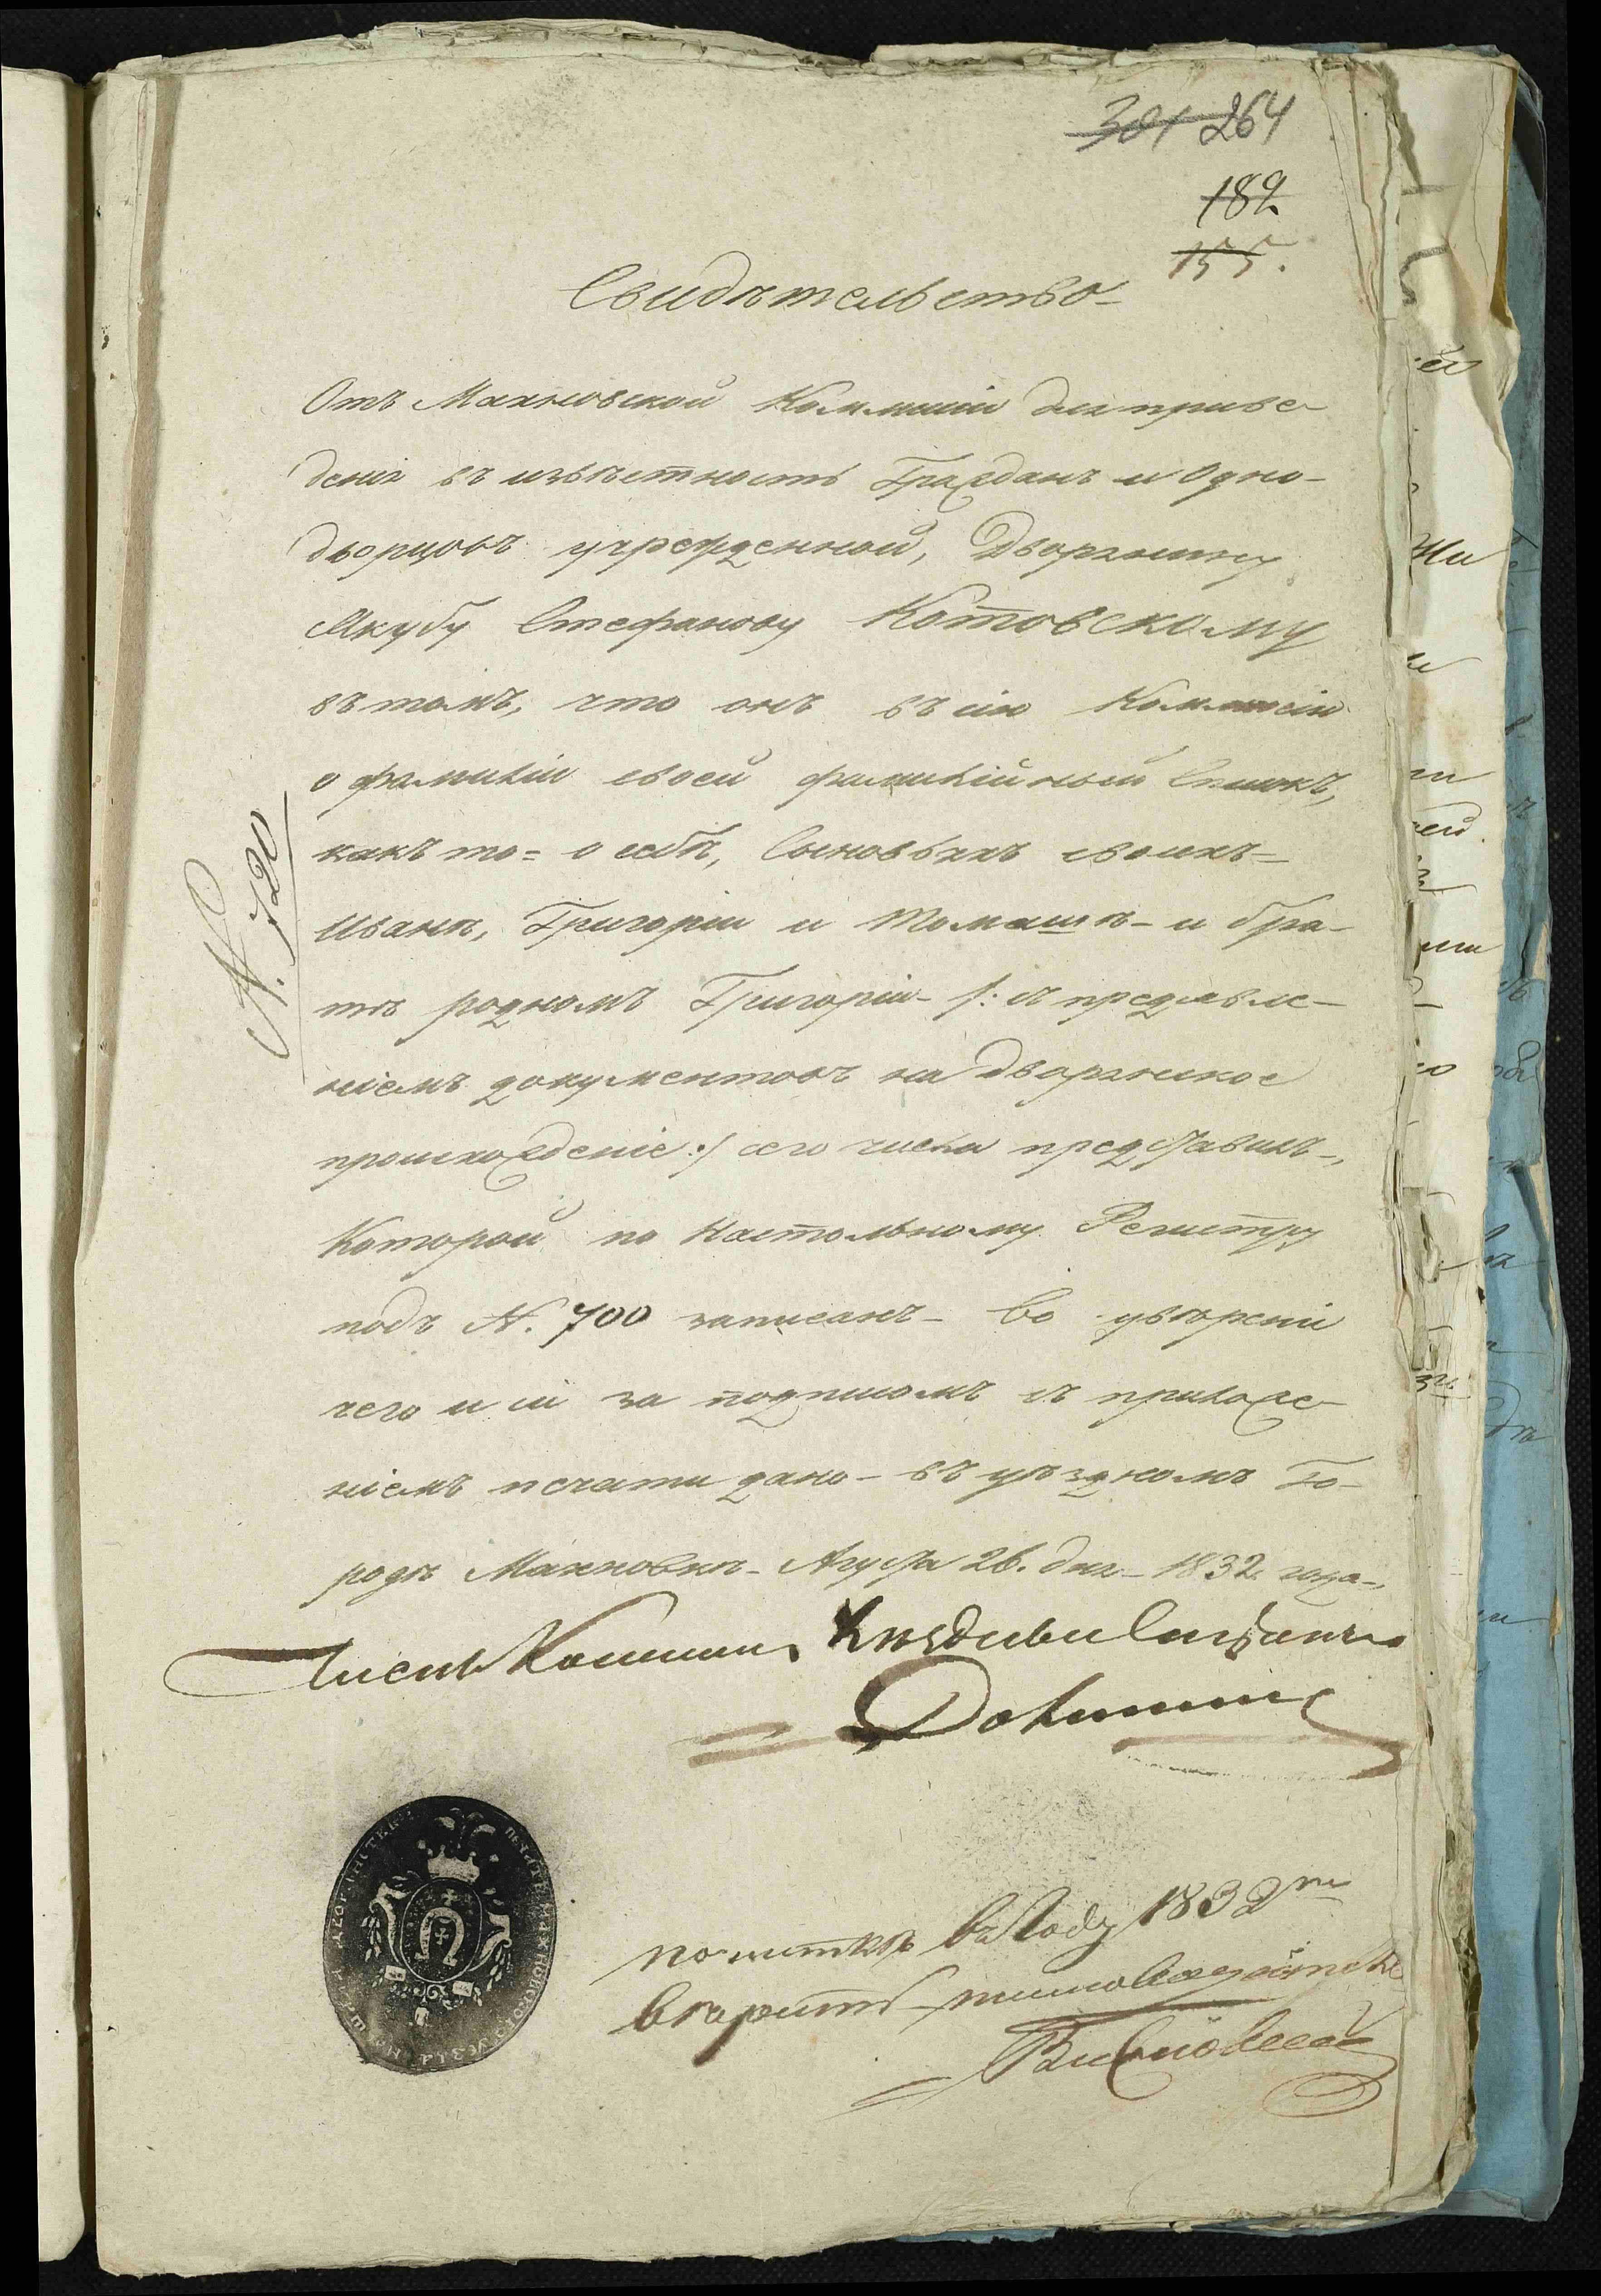 381 264
182
155.
Свидѣтельство
Отъ Махновской Коммисіи для приве-
денія въ извѣстность Гражданъ и Одно-
дворцовъ учрежденной, Дворянину
Якубу Стефанову Котовскому
въ томъ, что онъ въ сію Коммисію
о фамиліи своей фамилійный Списокъ,
какъ то = о себѣ, Сыновьяхъ своихъ =
Иванѣ, Григоріи и Томашѣ - и бра-
тѣ родномъ Григоріи - /: съ предъявле-
ніемъ документовъ на дворянское
происхожденіе :/ сего числа представилъ -,
Которой по Настольному Регистру
подъ N. 700 записанъ - Во увѣреніи
чего и сіе за подписомъ съ приложе-
ніемъ печати дано - въ уѣздномъ Го-
родѣ Махновкѣ - Августа 26. дня - 1832 года -,
N. 720
Члень Комиси
1832